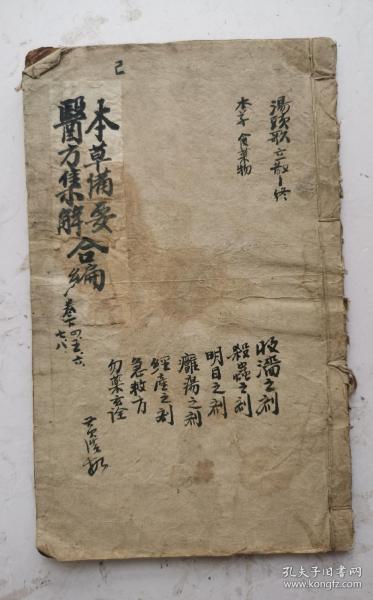 湯頭歌
本草 食菜物
收濇之剂
殺蟲之剂
明目之剂
癰瘍之剂
經產之剂
急救方
勿藥玄詮
己
本草備要
醫方集解
合編
卷下 四五六
七八
孔夫子旧书网